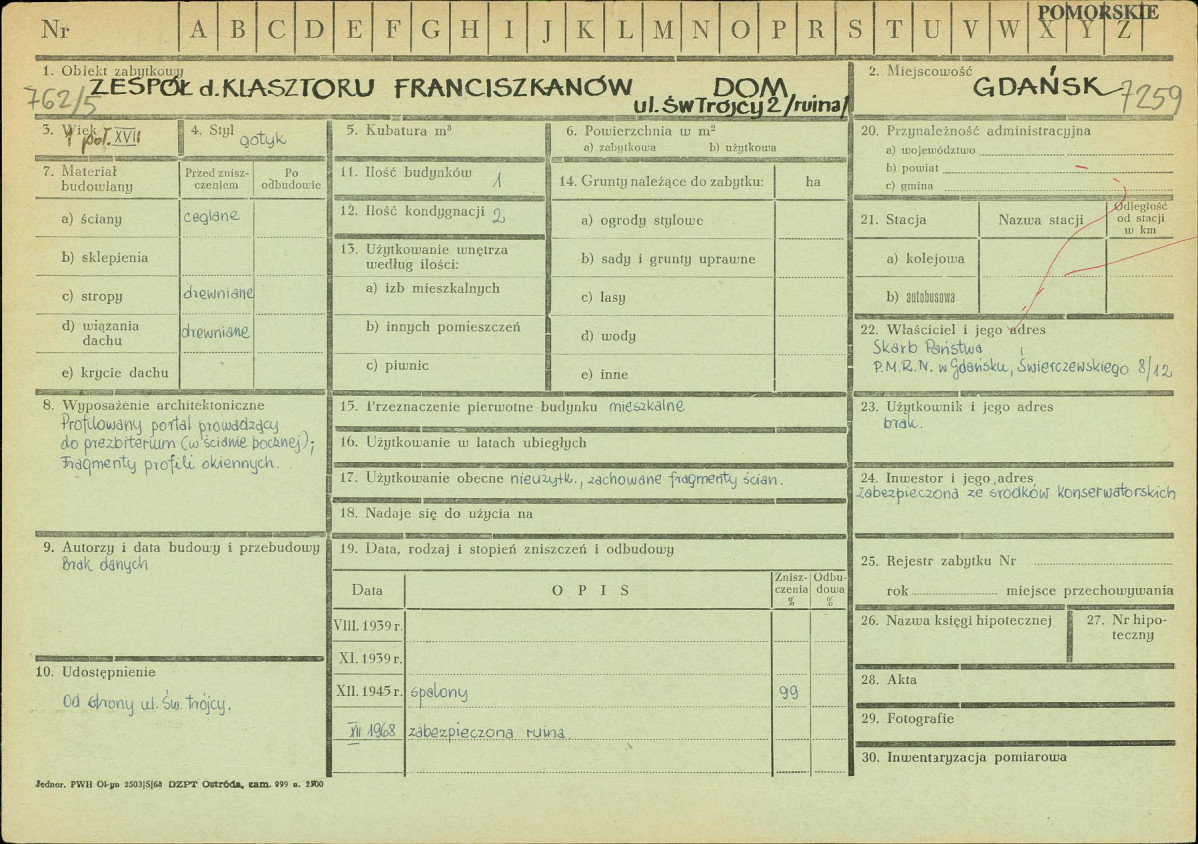 POMORSKIE
Nr A B C D E F G H I J K L M N O P R S T U V W X Y Z
1. Obiekt zabytkowy
ZESPÓŁ d. KLASZTORU FRANCISZKANÓW DOM
ul. Św Trójcy 2 /ruina/
762/5
2. Miejscowość
GDAŃSK
7259
3. Wiek
I poł. XVII
4. Styl
gotyk
5. Kubatura m³
6. Powierzchnia w m²
a) zabytkowa b) użytkowa
7. Materiał budowlany
Przed zniszczeniem
Po odbudowie
a) ściany ceglane
b) sklepienia
c) stropy drewniane
d) wiązania dachu drewniane
e) krycie dachu
11. Ilość budynków 1
12. Ilość kondygnacji 2
13. Użytkowanie wnętrza
według ilości:
a) izb mieszkalnych
b) innych pomieszczeń
c) piwnic
14. Grunty należące do zabytku: ha
a) ogrody stylowe
b) sady i grunty uprawne
c) lasy
d) wody
e) inne
20. Przynależność administracyjna
a) województwo
b) powiat
c) gmina
21. Stacja Nazwa stacji Odległość od stacji w km
a) kolejowa
b) autobusowa
22. Właściciel i jego adres
Skarb Państwa
P.M.R.N. w Gdańsku, Świerczewskiego 8/12
8. Wyposażenie architektoniczne
Profilowany portal prowadzący
do prezbiterium (w ścianie bocznej);
Fragmenty profili okiennych.
15. Przeznaczenie pierwotne budynku mieszkalne
16. Użytkowanie w latach ubiegłych
17. Użytkowanie obecne nieużytk., zachowane fragmenty ścian.
18. Nadaje się do użycia na
23. Użytkownik i jego adres
brak.
24. Inwestor i jego adres
zabezpieczona ze środków konserwatorskich
9. Autorzy i data budowy i przebudowy
Brak danych
19. Data, rodzaj i stopień zniszczeń i odbudowy
Data OPIS Zniszczenia % Odbudowa %
VIII. 1939 r.
XI. 1939 r.
XII. 1945 r. spalony 99
XII 1968 zabezpieczona ruina.
25. Rejestr zabytku Nr
rok miejsce przechowywania
26. Nazwa księgi hipotecznej
27. Nr hipoteczny
28. Akta
29. Fotografie
30. Inwentaryzacja pomiarowa
10. Udostępnienie
Od strony ul. Św. Trójcy.
Jednor. PWH Ol-yn 2503/S/68 DZPT Ostróda, zam. 999 n. 2500